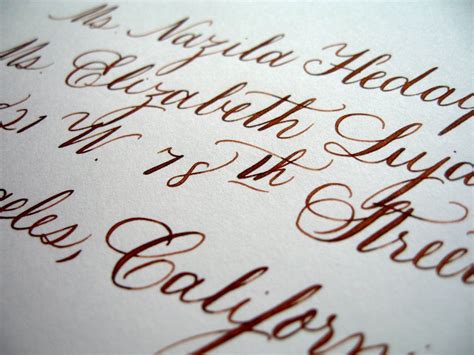 Ms. Nazila Heday
Ms. Elizabeth Luja
21 W. 78th Stree
geles, Californ